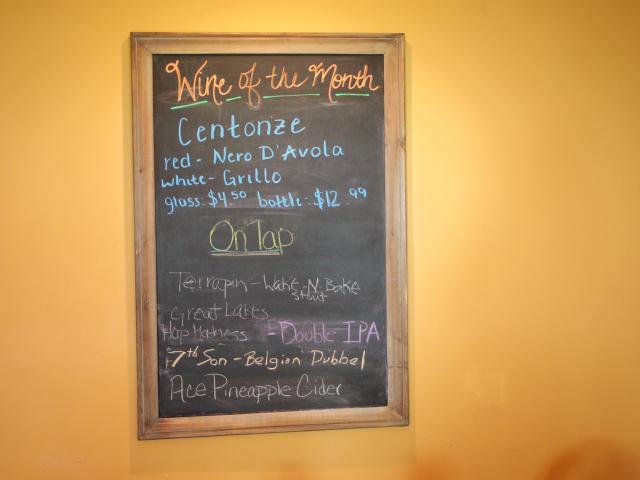 Wine of the Month
Centonze
red - Nero D'Avola
white - Grillo
glass: $4.50 bottle: $12.99
On Tap
Terrapin - Wake-N-Bake
stout
Great Lakes
Hop Madness - Double IPA
7th Son - Belgian Dubbel
Ace Pineapple Cider